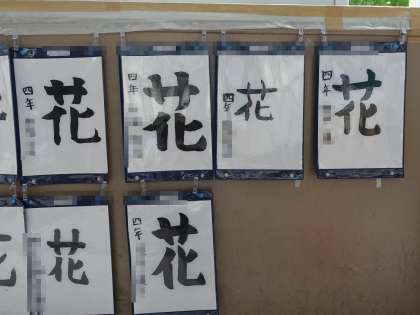 花
四年
花
四年
花
四年
花
四年
花
花
花
四年